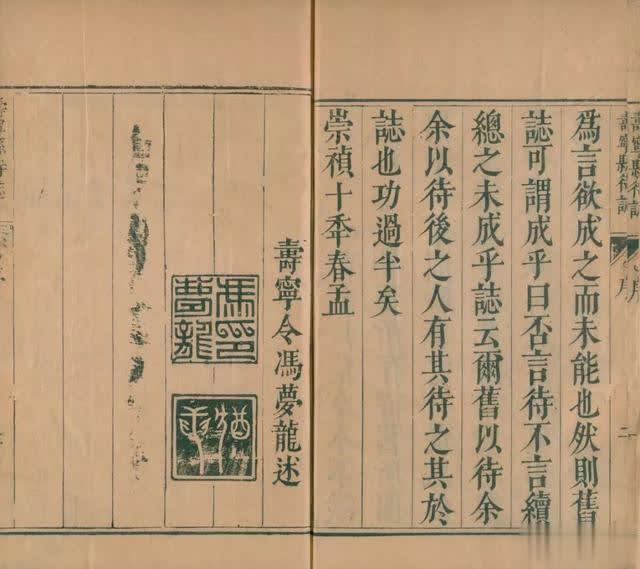 爲言欲成之而未能也然則舊
誌可謂成乎曰否言待不言續
總之未成乎誌云爾舊以待余
余以待後之人有其待之其於
誌也功過半矣
崇禎十年春孟
壽寧令馮夢龍述
馮夢龍印
猶龍
壽寧縣待誌
序
二